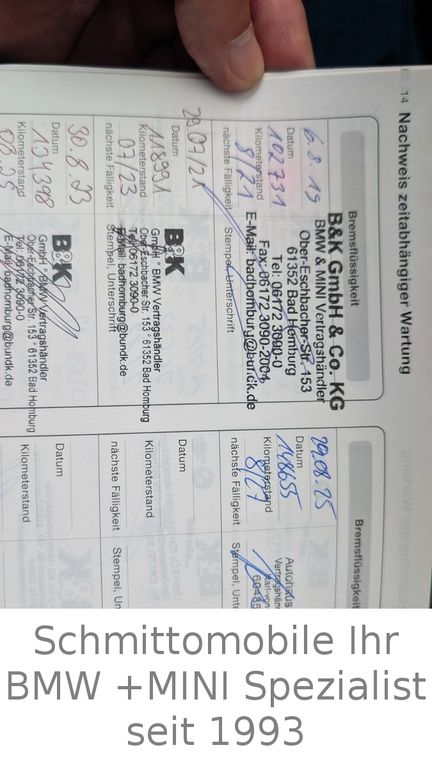 14 Nachweis zeitabhängiger Wartung
Bremsflüssigkeit
6.8.19
Datum
102731
Kilometerstand
8/21
nächste Fälligkeit
B&K GmbH & Co. KG
BMW & MINI Vertragshändler
Ober-Eschbacher-Str. 153
61352 Bad Homburg
Tel: 06172 3090-0
Fax: 06172 3090-200
E-Mail: badhomburg@bundk.de
Stempel, Unterschrift
29.07/21
Datum
118991
Kilometerstand
07/23
nächste Fälligkeit
B&K
GmbH * BMW Vertragshändler
Ober-Eschbacher Str. 153 * 61352 Bad Homburg
Tel. 06172 3090-0
E-Mail: badhomburg@bundk.de
Stempel, Unterschrift
30.8.23
Datum
134398
Kilometerstand
08.25
B&K
GmbH * BMW Vertragshändler
Ober-Eschbacher Str. 153 * 61352 Bad Homburg
Tel. 06172 3090-0
E-Mail: badhomburg@bundk.de
Bremsflüssigkeit
29.08.25
Datum
148655
Kilometerstand
8/27
nächste Fälligkeit
Autohaus
Stempel, Unte
Datum
Kilometerstand
nächste Fälligkeit
Stempel, Un
Datum
Kilometerstand
Schmittomobile Ihr
BMW +MINI Spezialist
seit 1993